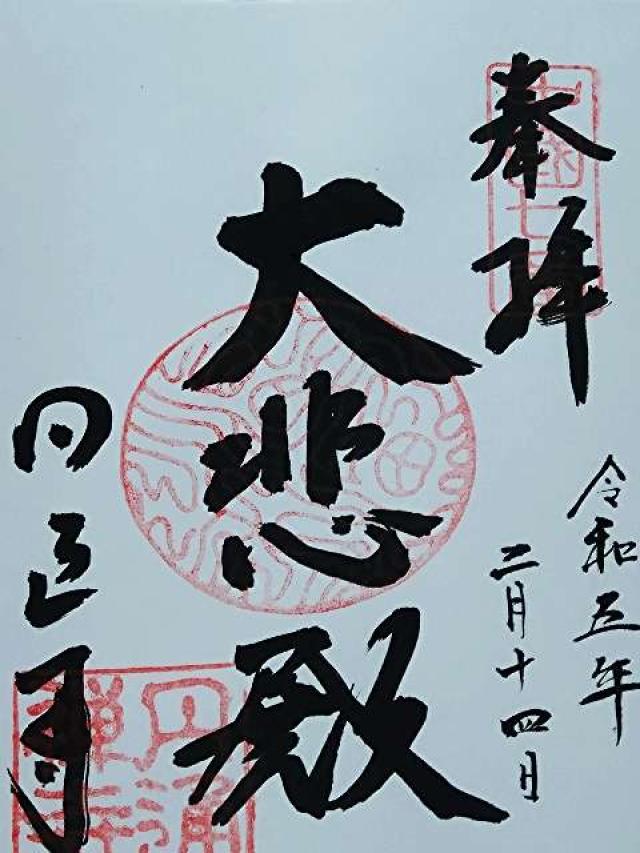 奉拝
令和五年
二月十四日
大悲殿
円通寺
円通
禅寺